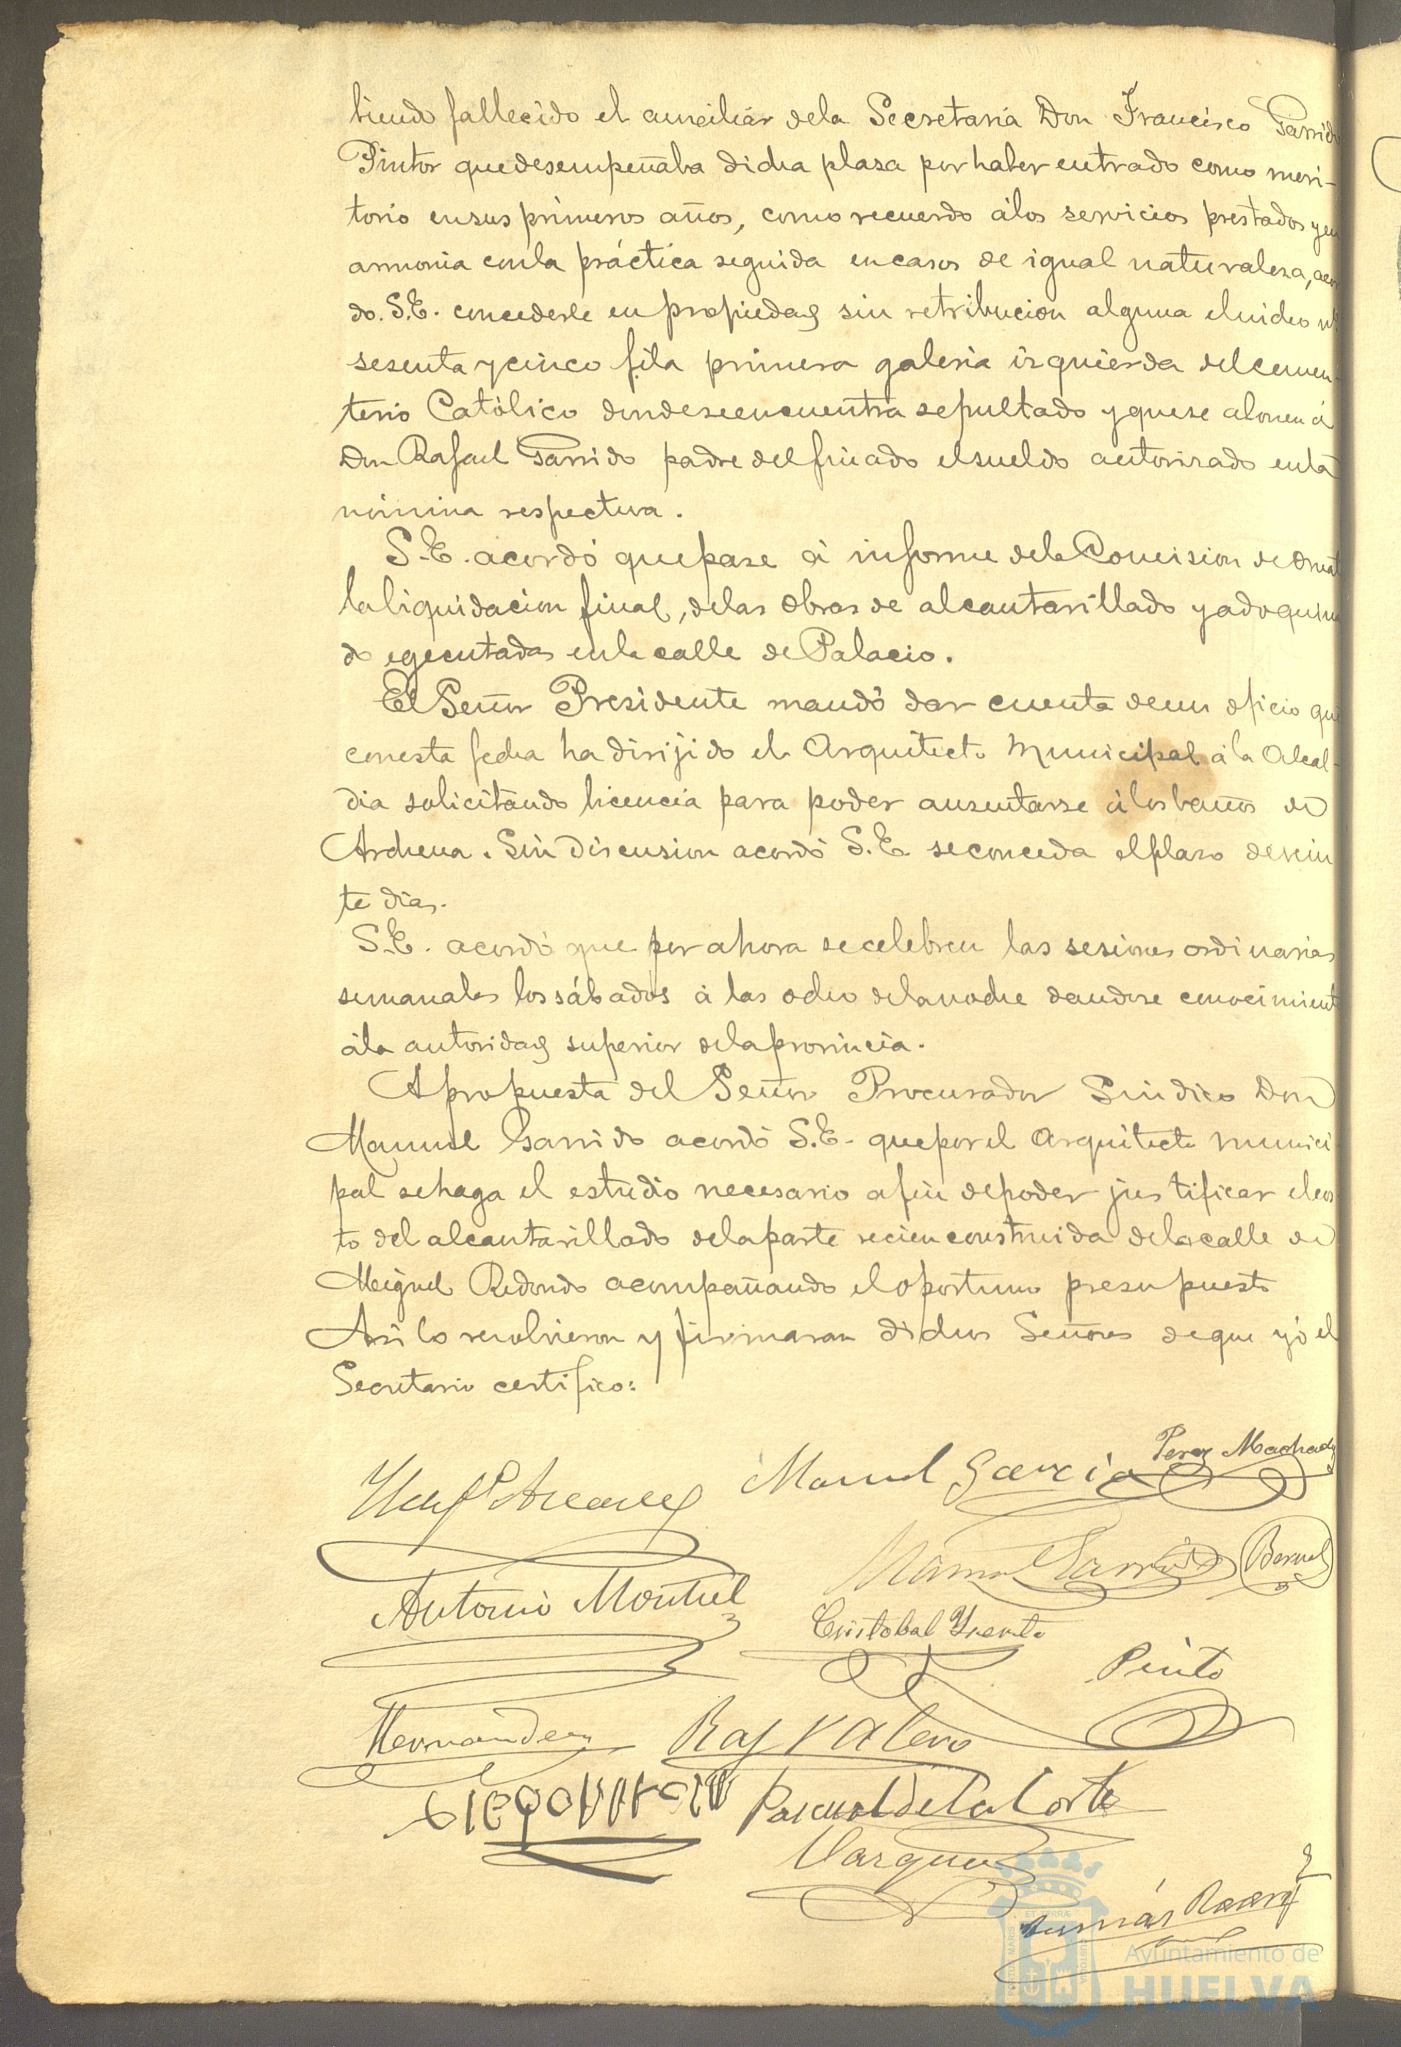 biendo fallecido el auxiliar dela Secretaria Don Francisco Garrido
Pintor quedesempeñaba dicha plasa por haber entrado como meri-
torio ensus primeros años, como recuerdo álos servicios prestados yen
armonia conla práctica seguida encasos de igual naturalesa, acor
do. S.E. concederle en propiedad sin retribucion alguna elnicho
sesenta ycinco fila primera galeria izquierda delcemen-
terio Católico dondeseencuentra sepultado yquese abonen á
Don Rafael Garrido padre delfinado elsueldo autorizado enla
nómina respectiva.
S.E. acordó quepase á informe dela Comision de Ornat
laliquidacion final, delas obras de alcantarillado yadoquina
do egecutadas enla calle de Palacio.
El Señor Presidente mandó dar cuenta deun oficio que
conesta fecha ha dirijido el Arquitecto Municipal á la Alcal-
dia solicitando licencia para poder ausentarse álosbaños de
Archena. Sin discusion acordó S.E. seconceda elplazo devein
te dias.
S.E. acordó que por ahora secelebren las sesiones ordinarias
semanales lossábados á las ocho delanoche dandose conocimient
ála autoridad superior delaprovincia.
Apropuesta del Señor Procurador Sindico Don
Manuel Garrido acordó S.E. quepor el Arquitecto munici
pal sehaga el estudio necesario afin depoder justificar elcos
to del alcantarillado delaparte recienconstruida delacalle de
Miguel Redondo acompañando eloportuno presupuesto
Asi lo resolvieron y firmaran dichos Señores deque yó el
Secretario certifico:
Manuel Garcia Perez Machado
Manuel Garrido Bernal
Antonio Montiel
Cristobal
Pinto
Hernandez Raf Valero
Pascual de la Corte
Vargues
Tomás
Ayuntamiento de
HUELVA